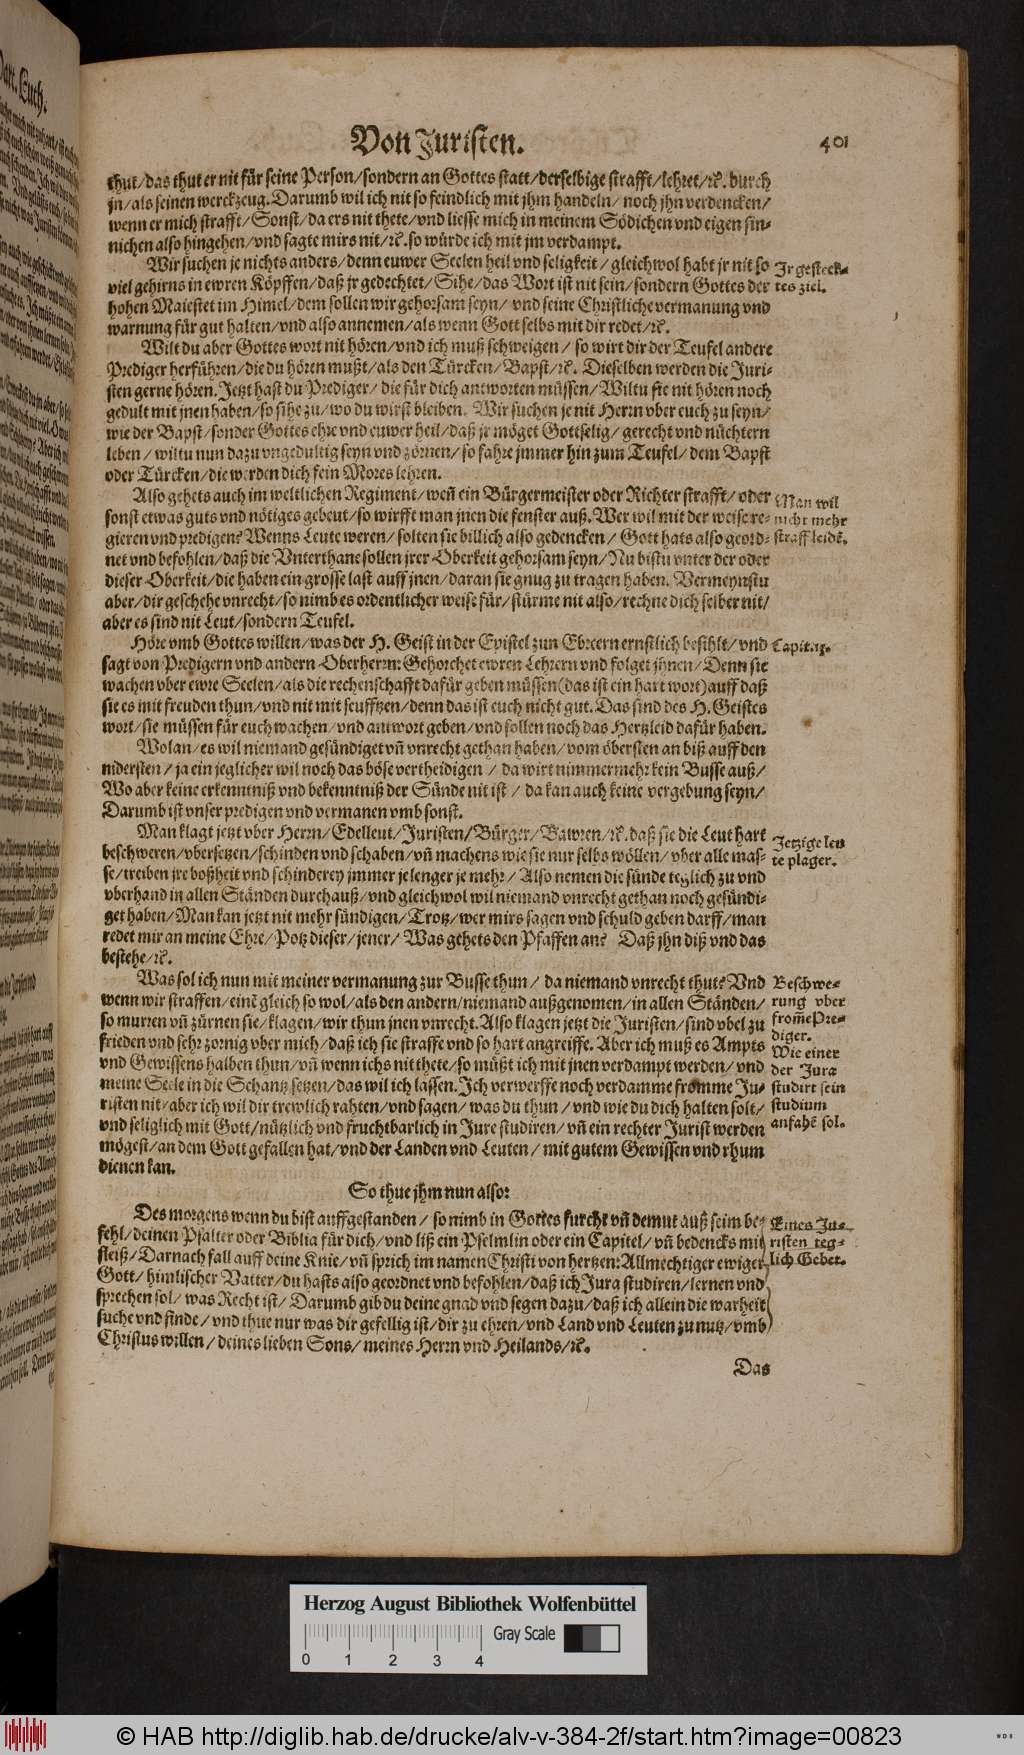 Von Juristen. 401
thut/das thut er nit für seine Person/sondern an Gottes statt/derselbige strafft/lehret/ꝛc. durch
jn/als seinen werckzeug. Darumb wil ich nit so feindlich mit jhm handeln/ noch jhn verdencken/
wenn er mich strafft/Sonst/da ers nit thete/vnd liesse mich in meinem Södichen vnd eigen sin-
nichen also hingehen/vnd sagte mirs nit/ꝛc. so würde ich mit jm verdampt.
Wir suchen je nichts anders/denn euwer Seelen heil vnd seligkeit/gleichwol habt jr nit so
viel gehirns in ewren Köpffen/daß jr gedechtet/Sihe/das Wort ist nit sein/sondern Gottes der
hohen Maiestet im Himel/dem sollen wir gehorsam seyn/ vnd seine Christliche vermanung vnd
warnung für gut halten/vnd also annemen/als wenn Gott selbs mit dir redet/ꝛc.
Ir gesteck-
tes ziel.
Wilt du aber Gottes wort nit hören/vnd ich muß schweigen/ so wirt dir der Teufel andere
Prediger herführen/die du hören mußt/als den Türcken/Bapst/ꝛc. Dieselben werden die Juri-
sten gerne hören. Jetzt hast du Prediger/ die für dich antworten müssen/Wiltu sie nit hören noch
gedult mit jnen haben/so sihe zu/wo du wirst bleiben. Wir suchen je nit Herrn vber euch zu seyn/
wie der Bapst/sonder Gottes ehre vnd euwer heil/daß jr möget Gottselig/gerecht vnd nüchtern
leben/ wiltu nun dazu vngedultig seyn vnd zörnen/so fahre jmmer hin zum Teufel/dem Bapst
oder Türcken/die werden dich fein Mores lehren.
Also gehets auch im weltlichen Regiment/weñ ein Bürgermeister oder Richter strafft/oder
sonst etwas guts vnd nötiges gebeut/so wirfft man jnen die fenster auß. Wer wil mit der weise re-
gieren vnd predigen? Wenns Leute weren/solten sie billich also gedencken/ Gott hats also geord-
net vnd befohlen/daß die Vnterthane sollen jrer Oberkeit gehorsam seyn/Nu bistu vnter der oder
dieser Oberkeit/die haben ein grosse last auff jnen/daran sie gnug zu tragen haben. Vermeynstu
aber/dir geschehe vnrecht/so nimb es ordentlicher weise für/stürme nit also/rechne dich selber nit/
aber es sind nit Leut/sondern Teufel.
Man wil
nicht mehr
straff leidē.
Höre vmb Gottes willen/was der H. Geist in der Epistel zun Ebreern ernstlich befihlt/vnd
sagt von Predigern vnd andern Oberherrn: Gehorchet ewren Lehrern vnd folget jhnen/Denn sie
wachen vber ewre Seelen/als die rechenschafft dafür geben müssen (das ist ein hart wort) auff daß
sie es mit freuden thun/vnd nit mit seufftzen/denn das ist euch nicht gut. Das sind des H. Geistes
wort/sie müssen für euch wachen/vnd antwort geben/vnd sollen noch das Hertzleid dafür haben.
Wolan/es wil niemand gesündiget vñ vnrecht gethan haben/vom öbersten an biß auff den
nidersten/ ja ein jeglicher wil noch das böse vertheidigen/ da wirt nimmermehr kein Busse auß/
Wo aber keine erkenntniß vnd bekenntniß der Sünde nit ist/ da kan auch keine vergebung seyn/
Darumb ist vnser predigen vnd vermanen vmb sonst.
Man klagt jetzt vber Herrn/Edelleut/Juristen/Bürger/Bawren/ꝛc. daß sie die Leut hart
beschweren/vbersetzen/schinden vnd schaben/vñ machens wie sie nur selbs wöllen/vber alle mas-
se/treiben jre boßheit vnd schinderey jmmer je lenger je mehr/ Also nemen die sünde teglich zu vnd
vberhand in allen Ständen durchauß/vnd gleichwol wil niemand vnrecht gethan noch gesündi-
get haben/Man kan jetzt nit mehr sündigen/Trotz/wer mirs sagen vnd schuld geben darff/man
redet mir an meine Ehre/Potz dieser/jener/ Was gehets den Pfaffen an? Daß jhn diß vnd das
bestehe/ꝛc.
Jetzige leu
te plager.
Was sol ich nun mit meiner vermanung zur Busse thun/ da niemand vnrecht thut? Vnd
wenn wir straffen/einē gleich so wol/als den andern/niemand außgenomen/in allen Ständen/
so murren vñ zürnen sie/klagen/wir thun jnen vnrecht. Also klagen jetzt die Juristen/sind vbel zu
frieden vnd sehr zornig vber mich/daß ich sie straffe vnd so hart angreiffe. Aber ich muß es Ampts
vnd Gewissens halben thun/vñ wenn ichs nit thete/so müßt ich mit jnen verdampt werden/vnd
meine Seele in die Schantz setzen/das wil ich lassen. Ich verwerffe noch verdamme fromme Ju-
risten nit/aber ich wil dir trewlich rahten/vnd sagen/was du thun/ vnd wie du dich halten solt/
vnd seliglich mit Gott/nützlich vnd fruchtbarlich in Jure studiren/vñ ein rechter Jurist werden
mögest/an dem Gott gefallen hat/vnd der Landen vnd Leuten/ mit gutem Gewissen vnd rhum
dienen kan.
Beschwe-
rung vber
from̄e Pre-
diger.
Wie einer
der Jura
studirt sein
studium
anfahē sol.
So thue jhm nun also:
Des morgens wenn du bist auffgestanden/ so nimb in Gottes furcht vñ demut auß seim be-
fehl/deinen Psalter oder Biblia für dich/vnd liß ein Pselmlin oder ein Capitel/vñ bedencks mit
fleiß/Darnach fall auff deine Knie/vñ sprich im namen Christi von hertzen: Allmechtiger ewiger
Gott/himlischer Vatter/du hasts also geordnet vnd befohlen/daß ich Jura studiren/lernen vnd
sprechen sol/ was Recht ist/Darumb gib du deine gnad vnd segen dazu/daß ich allein die warheit
suche vnd finde/ vnd thue nur was dir gefellig ist/dir zu ehren/vnd Land vnd Leuten zu nutz/vmb
Christus willen/deines lieben Sons/meines Herrn vnd Heilands/ꝛc.
Eines Ju-
risten teg-
lich Gebet.
Das
Herzog August Bibliothek Wolfenbüttel
Gray Scale
0 1 2 3 4
© HAB http://diglib.hab.de/drucke/alv-v-384-2f/start.htm?image=00823